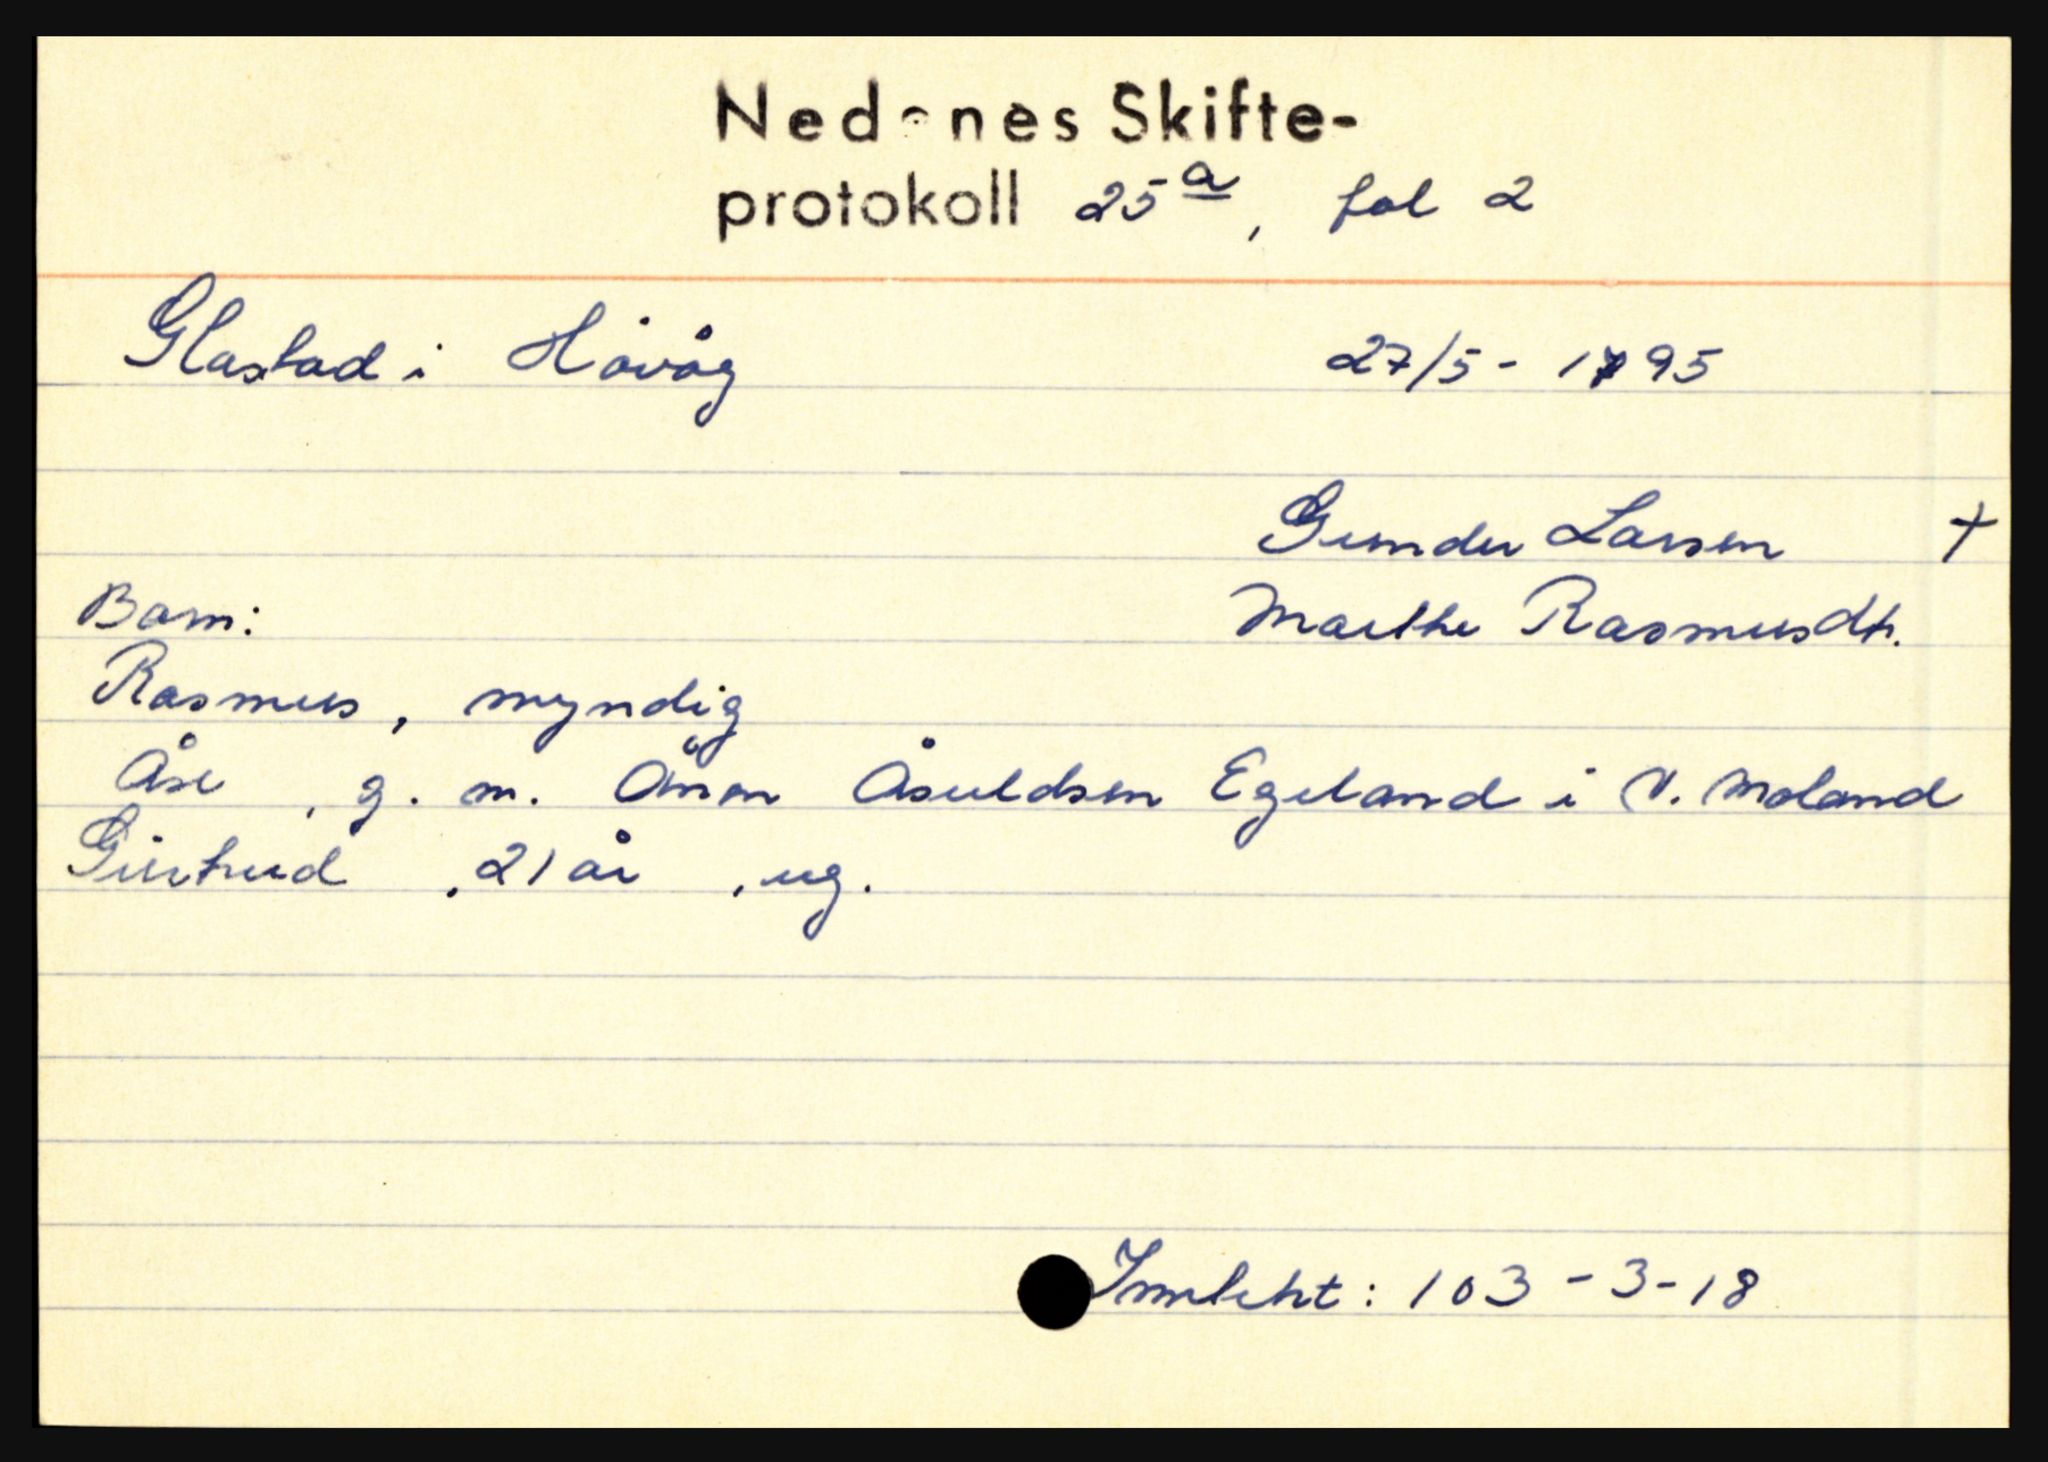 Nedenes Skifte-
protokoll 25a, fol 2
Glastad i Høvåg 27/5 - 1795
Gunder Larsen +
Barn: Marthe Rasmusdtr.
Rasmus, myndig
Åse, g. m. Ånen Åsuldsen Egeland i V. Moland
Giertrud, 21 år, ug.
Inntekt: 103 - 3 - 18